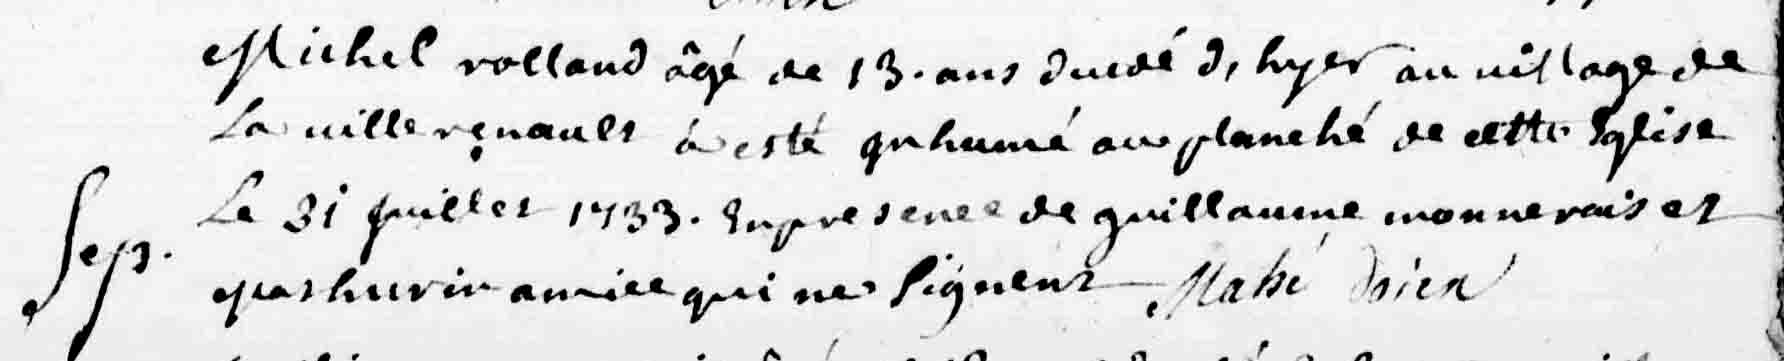 Michel rolland âgé de 13. ans ducdé d, hyer au village de
La ville renault à esté Inhumé au planché de cette Eglise
Sep. Le 31 Juillet 1733. En presence de guillaume monnerais et
Mathurin amice qui ne Signent Mahé